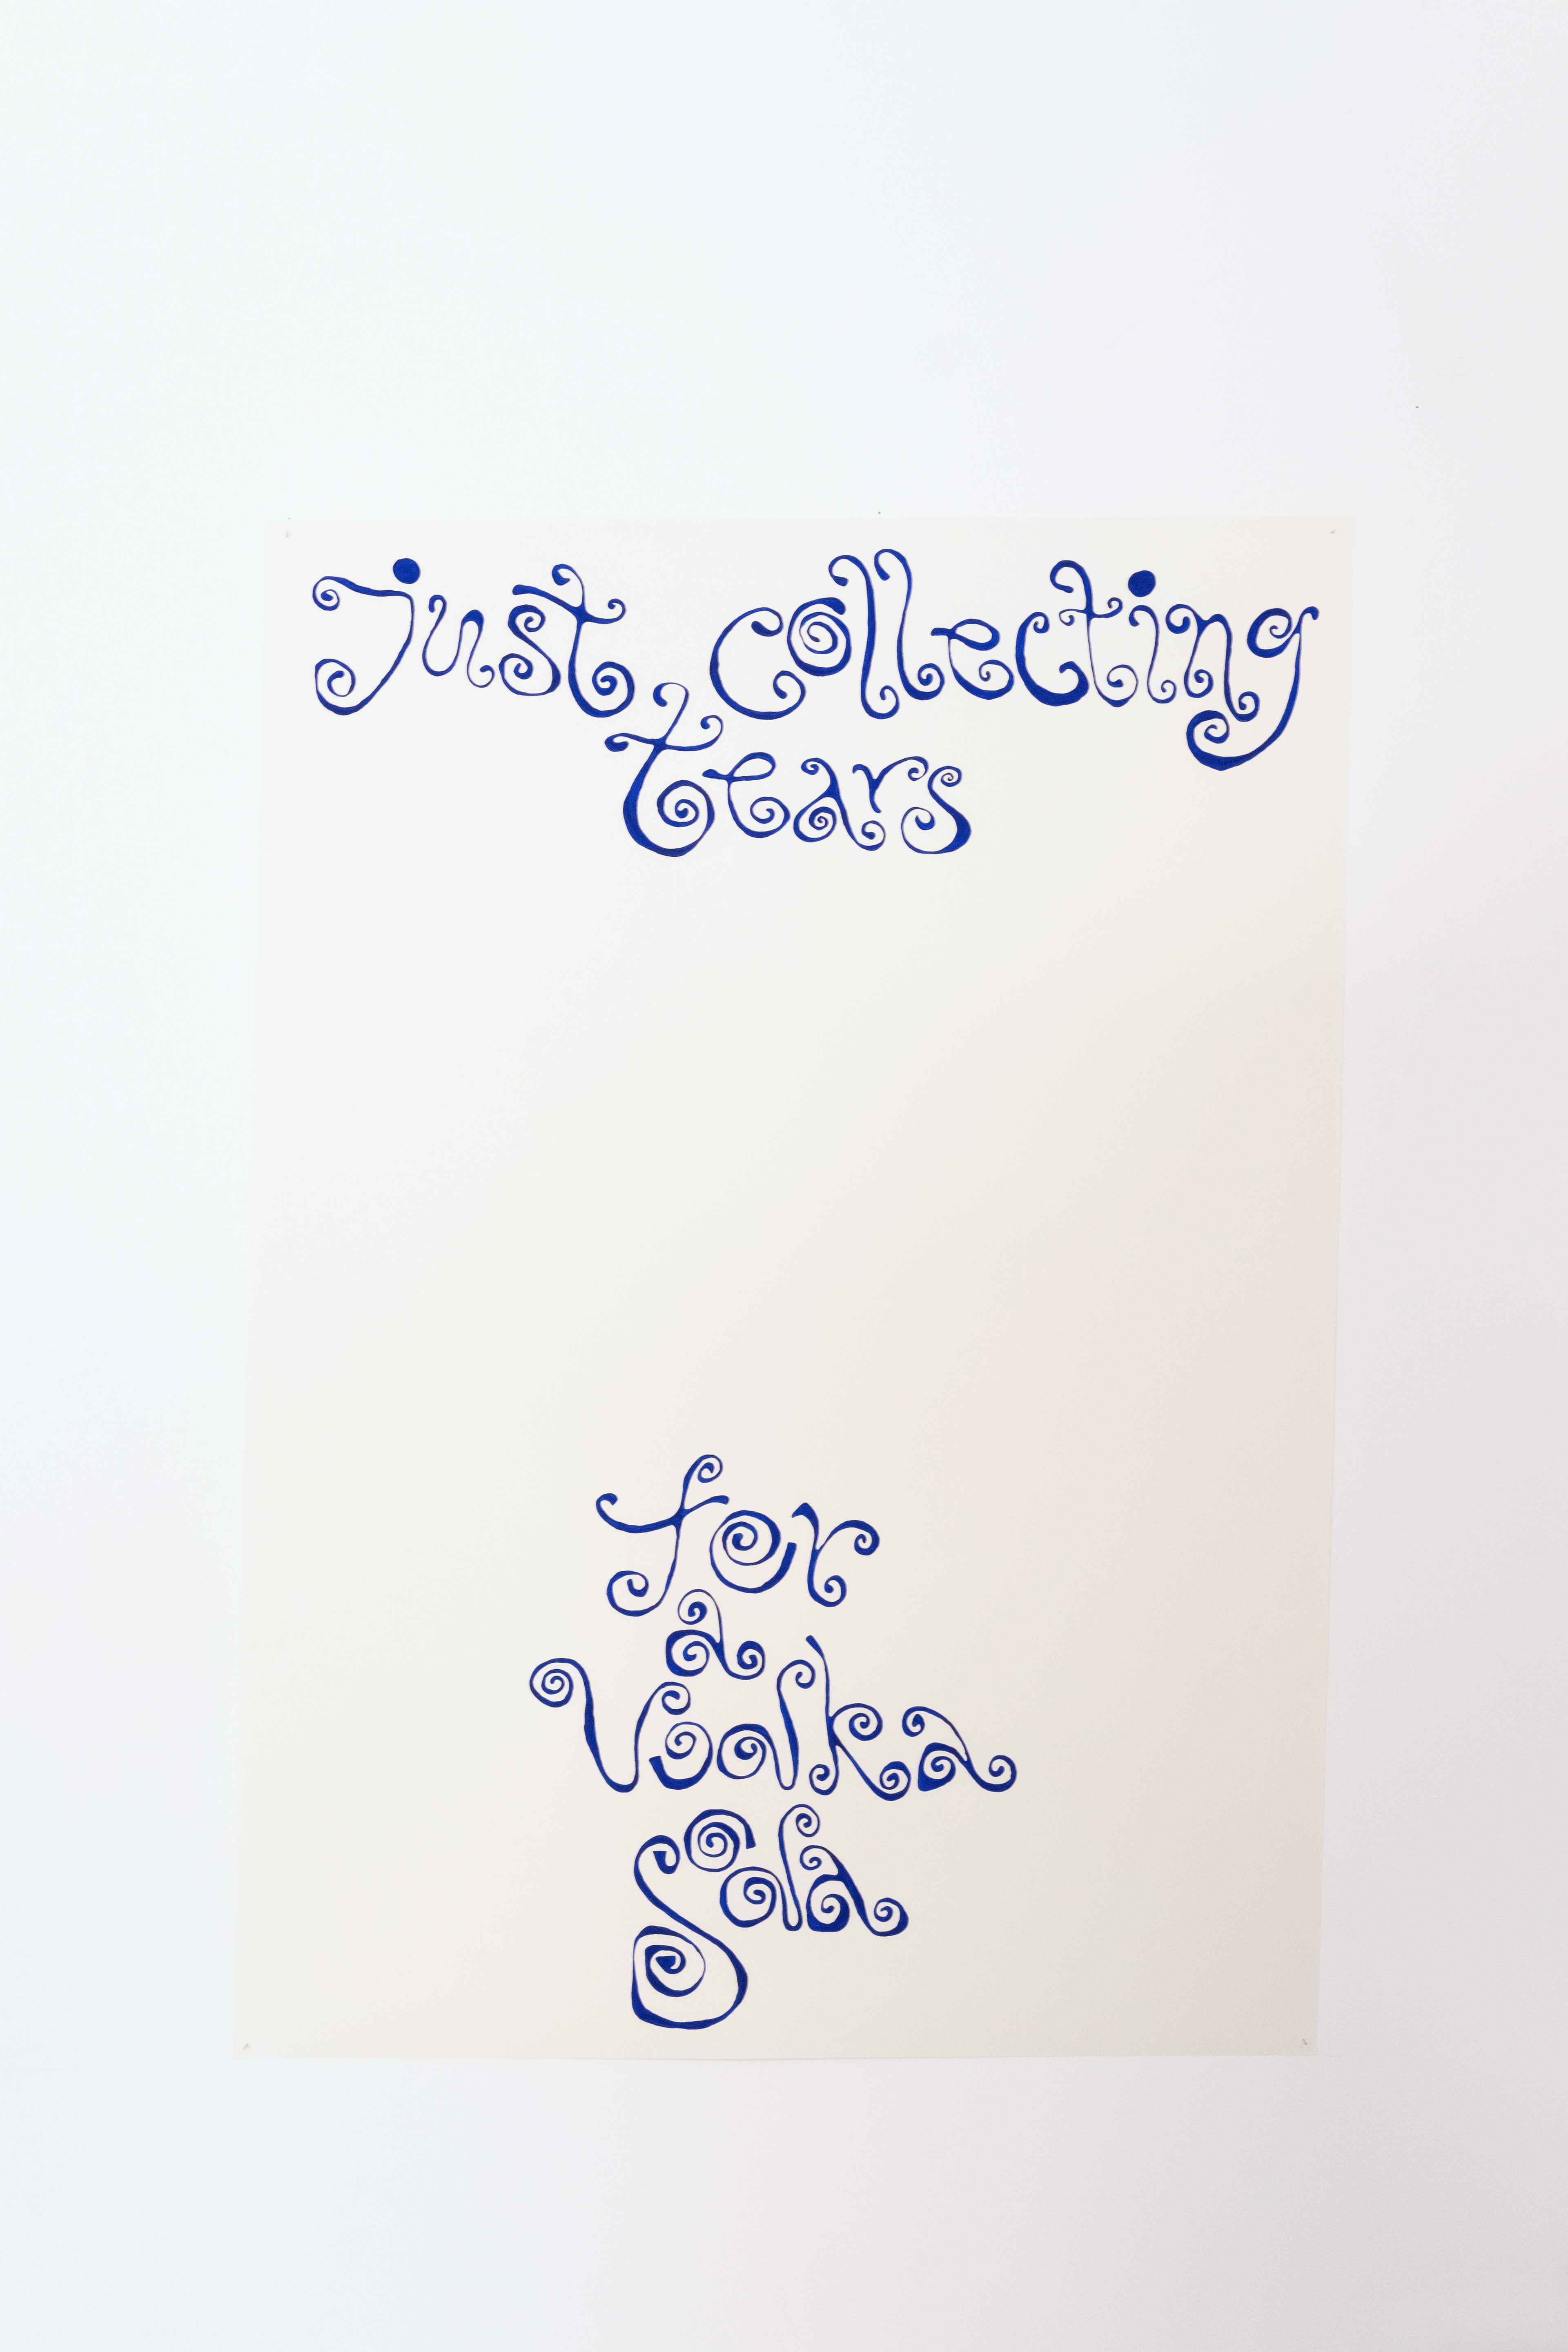 Just collecting
tears
for
a
Vodka
Soda